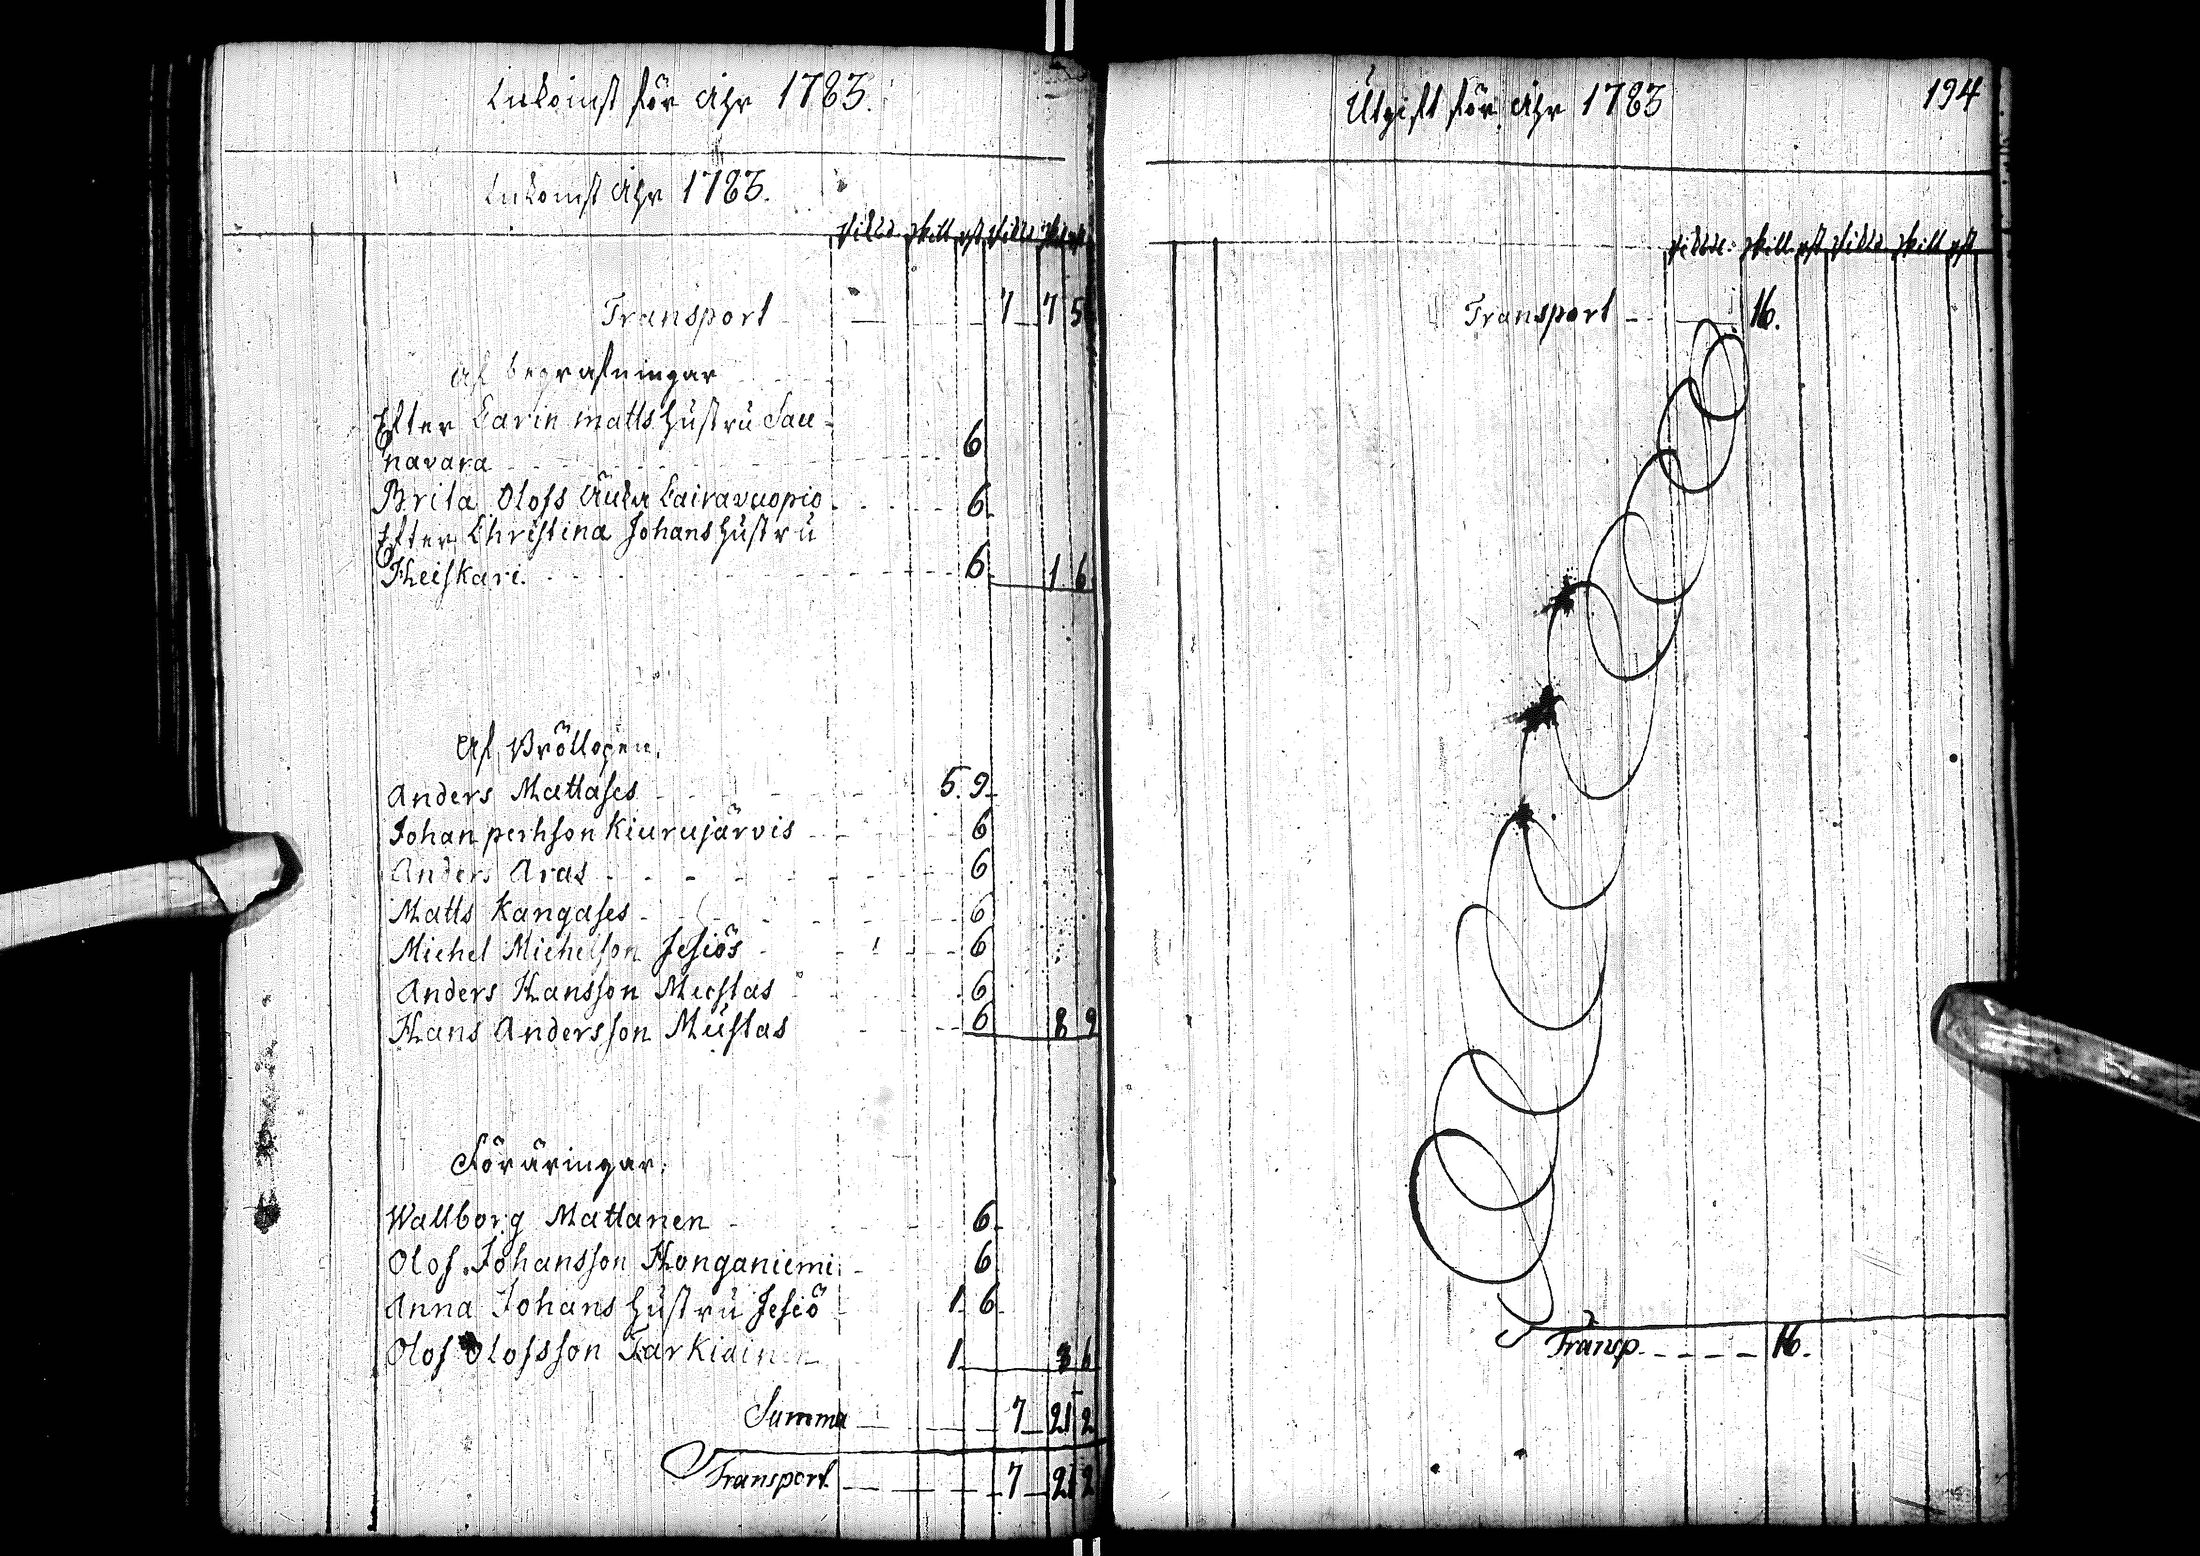 Inkomst för Åhr 1783.
Inkomst Åhr 1783.
Riksd. skill. rst. Riksd. skill. rst
Transport 7 7 5
Af begrafningar
Efter Carin Matts hustru Sau-
navara 6
Brita Olofs Änka Cairavuopio 6
Efter Christina Johans hustru
Heiskari. 6 1 6
Af Bröllopen.
Anders Mattases 5. 9
Johan perhson Kiurujärvis 6
Anders Aras 6
Matts Kangases 6
Michel Michelson Jesiös 6
Anders Hansson Mustas 6
Hans Andersson Mustas 6 8 9
Föräringar.
Wallborg Mattanen 6
Olof Johansson Honganiemi 6
Anna Johans hustru Jesiö 1. 6
Olof Olofsson Tarkiainen 1 3 6
Summa 7 21 2
Transport 7 21 2
Utgift för Åhr 1783
194
Riksd. skill. rst Riksd. skill rst
Transport 16.
Transp. 16.